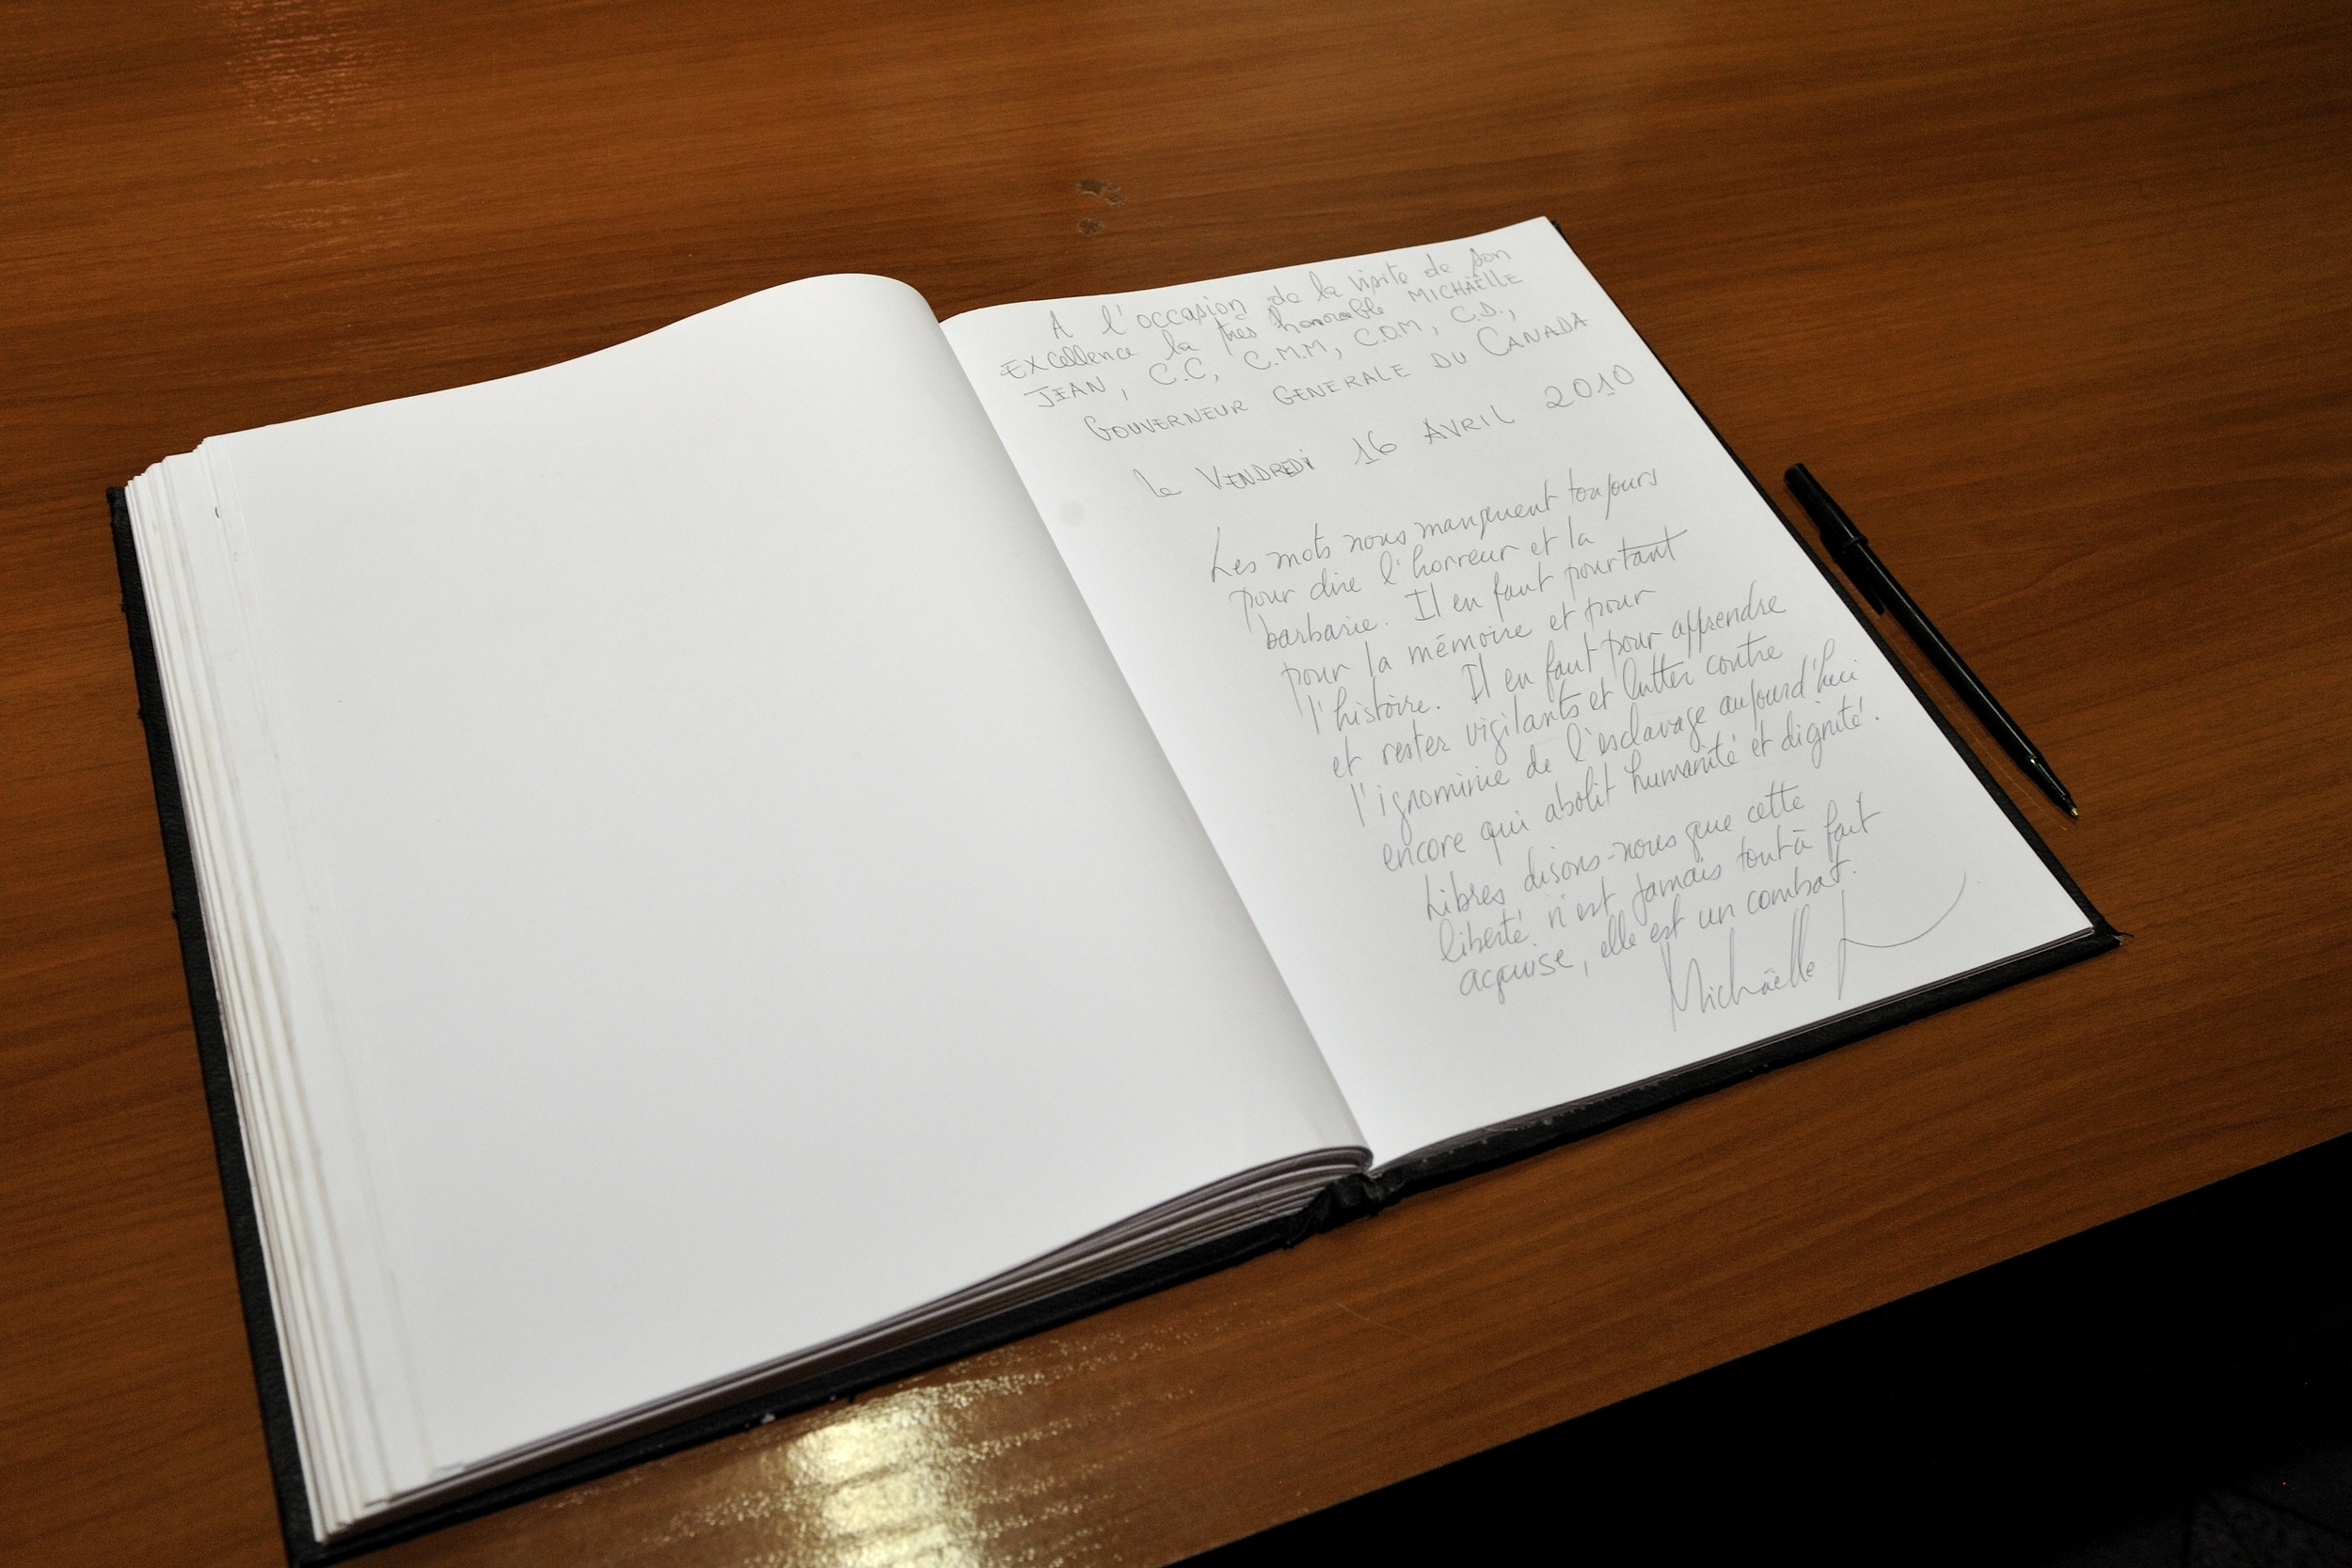 A l'occasion de la visite de son
Excellence la très honorable MICHAËLLE
JEAN, C.C, C.M.M, C.O.M, C.D.,
GOUVERNEUR GENERALE DU CANADA
Le VENDREDI 16 AVRIL 2010
Les mots nous manquent toujours
pour dire l'horreur et la
barbarie. Il en faut pourtant
pour la mémoire et pour
l'histoire. Il en faut pour apprendre
et rester vigilants et lutter contre
l'ignominie de l'esclavage aujourd'hui
encore qui abolit humanité et dignité.
Libres disons-nous que cette
liberté n'est jamais tout à fait
acquise, elle est un combat.
Michaëlle J